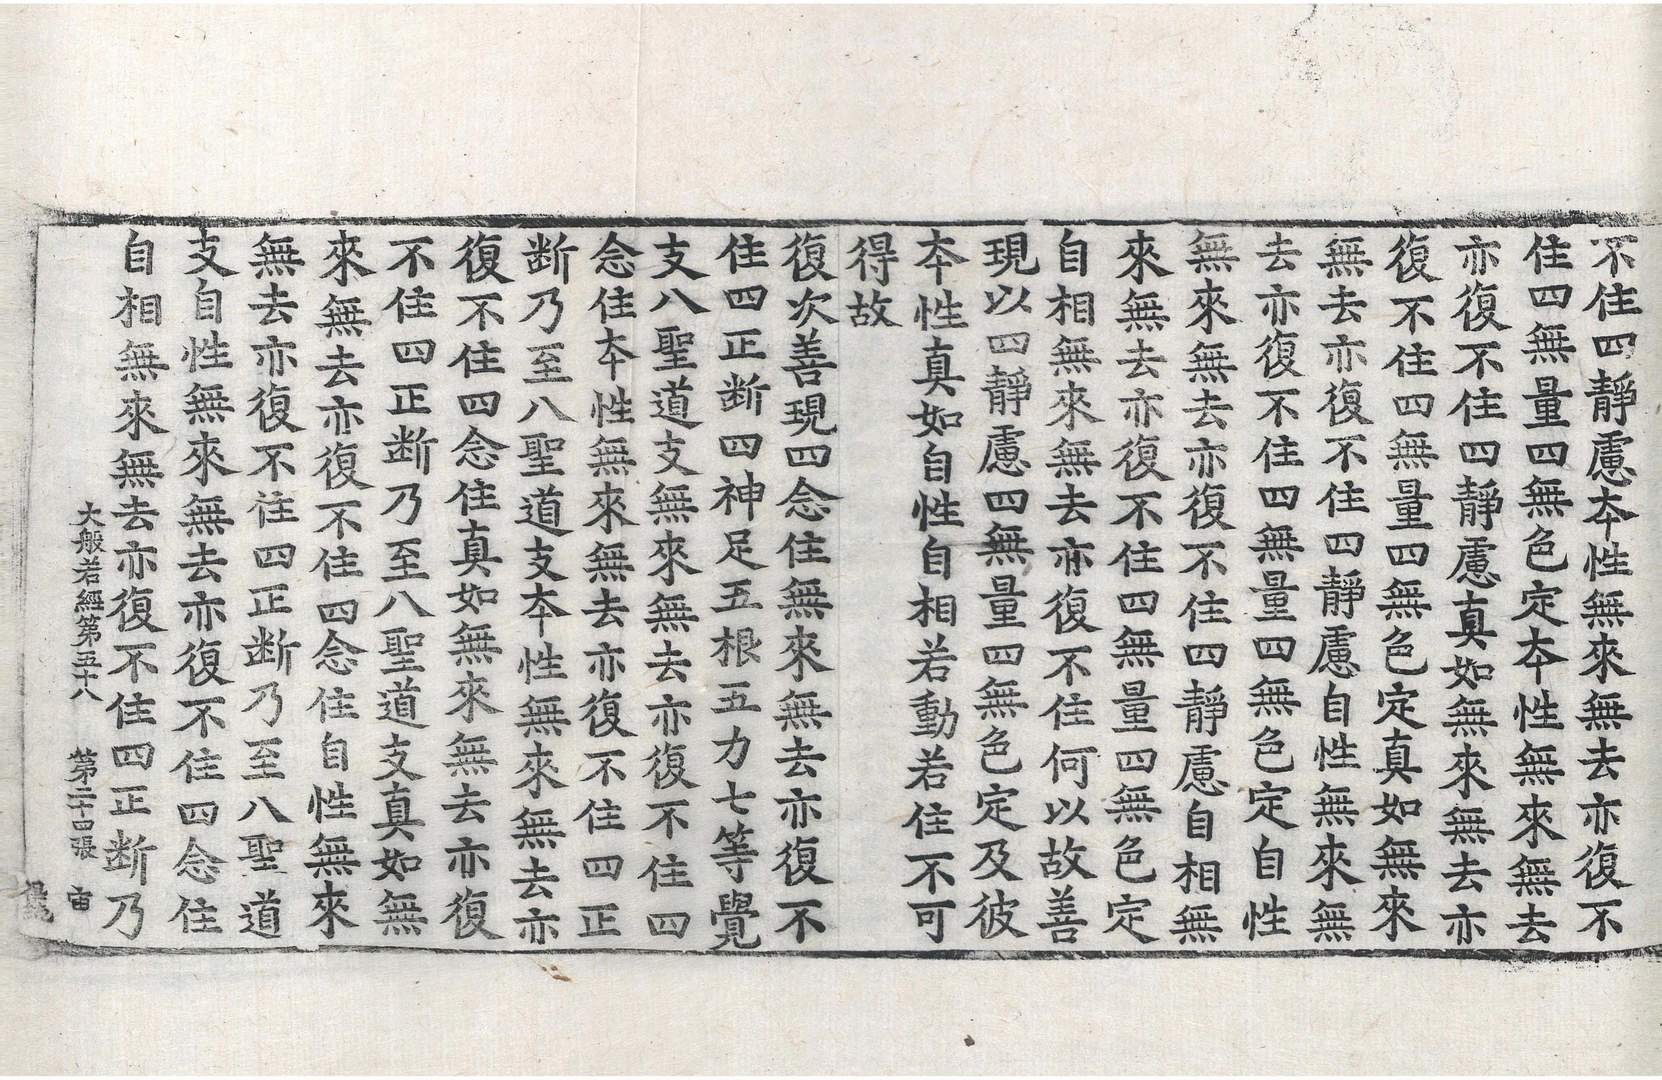 不住四靜慮夲性無來無去亦復不
住四無量四無色定夲性無來無去
亦復不住四靜慮真如無來無去亦
復不住四無量四無色定真如無來
無去亦復不住四靜慮自性無來無
去亦復不住四無量四無色定自性
無來無去亦復不住四靜慮自相無
來無去亦復不住四無量四無色定
自相無來無去亦復不住何以故善
現以四靜慮四無量四無色定及彼
夲性真如自性自相若動若住不可
得故
復次善現四念住無來無去亦復不
住四正断四神足五根五力七等覺
支八聖道支無來無去亦復不住四
念住夲性無來無去亦復不住四正
断乃至八聖道支夲性無來無去亦
復不住四念住真如無來無去亦復
不住四正断乃至八聖道支真如無
來無去亦復不住四念住自性無來
無去亦復不住四正断乃至八聖道
支自性無來無去亦復不住四念住
自相無來無去亦復不住四正断乃
大般若經第五十八 第二十四張 宙